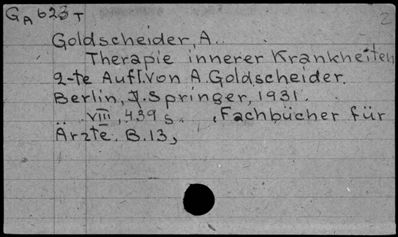 GA 623 T
2
Goldscheider, A.
Therapie innerer Krankheiten
2-te Aufl. von A. Goldscheider.
Berlin, J. Springer, 1931.
.. VIII, 439 s. , Fachbücher für
Ärzte. B. 13,